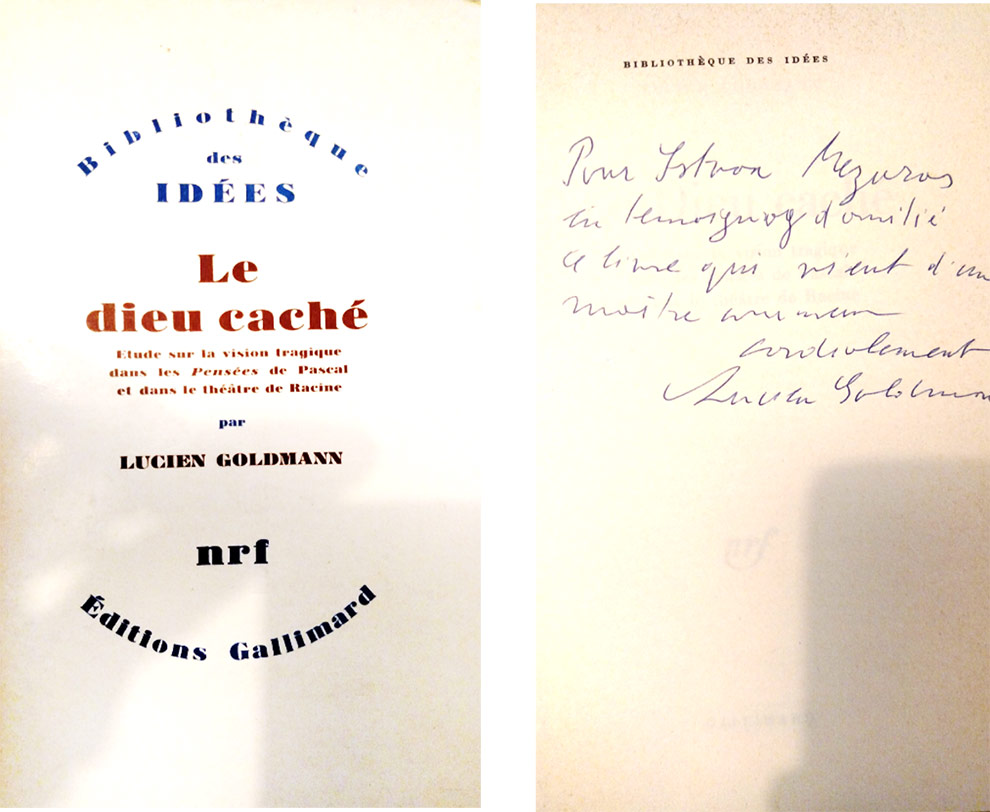 Bibliothèque
des
IDÉES
Le
dieu caché
Etude sur la vision tragique
dans les Pensées de Pascal
et dans le théâtre de Racine
par
LUCIEN GOLDMANN
nrf
Éditions Gallimard
BIBLIOTHÈQUE DES IDÉES
Pour Istvan Mezaros
en temoignag d'amitié
ce livre qui vient d'un
maitre commun
cordialement
Lucien Goldmann
nrf